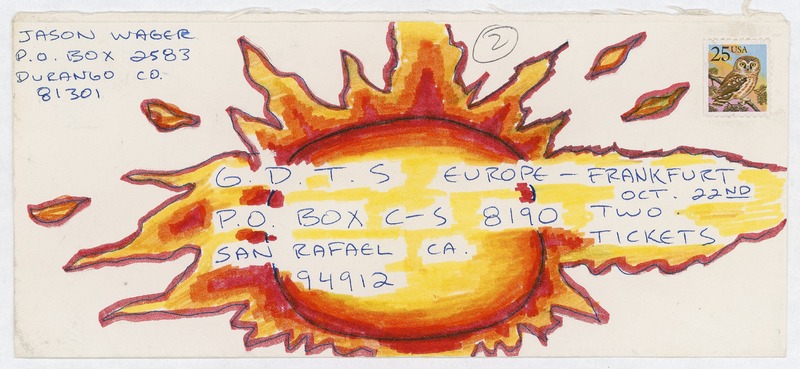 JASON WAGER
P.O. BOX 2583
DURANGO CO.
81301
2
25 USA
G.D.T.S EUROPE - FRANKFURT
OCT. 22ND
P.O. BOX C-S 8190 TWO
TICKETS
SAN RAFAEL CA.
94912